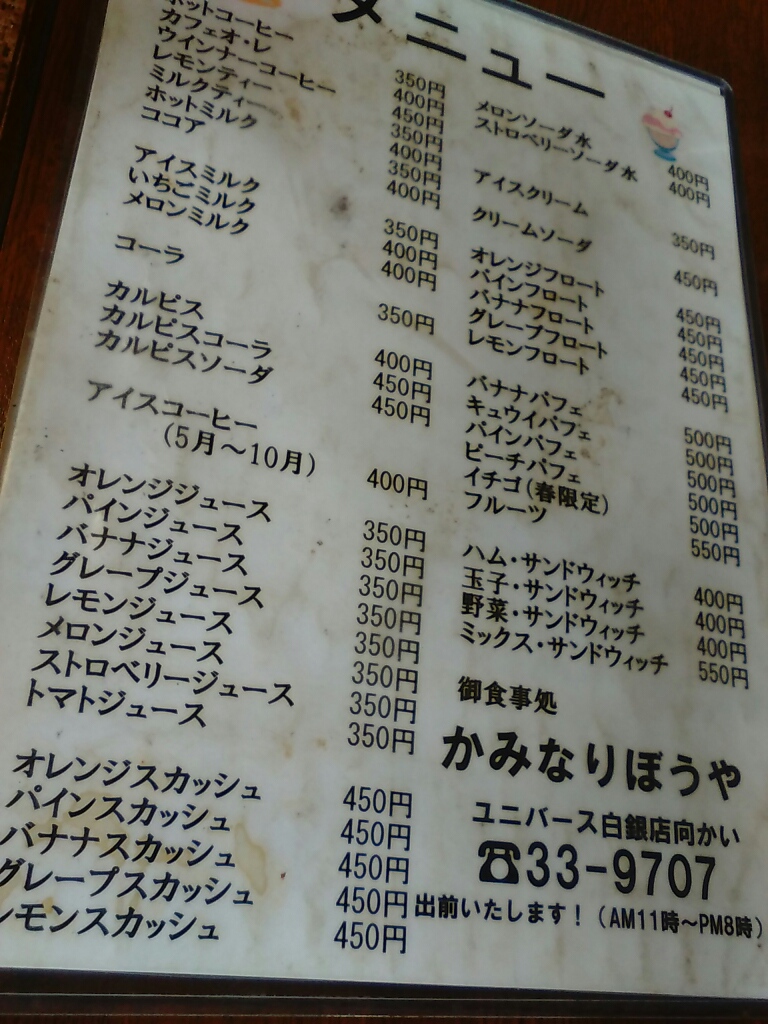 メニュー
ホットコーヒー 350円
カフェオ・レ 400円
ウインナーコーヒー 450円
レモンティー 350円
ミルクティー 400円
ホットミルク 350円
ココア 400円
アイスミルク 350円
いちごミルク 400円
メロンミルク 400円
コーラ 350円
カルピス 400円
カルピスコーラ 450円
カルピスソーダ 450円
アイスコーヒー
(5月～10月) 400円
オレンジジュース 350円
パインジュース 350円
バナナジュース 350円
グレープジュース 350円
レモンジュース 350円
メロンジュース 350円
ストロベリージュース 350円
トマトジュース 350円
オレンジスカッシュ 450円
パインスカッシュ 450円
バナナスカッシュ 450円
グレープスカッシュ 450円
レモンスカッシュ 450円
メロンソーダ水 400円
ストロベリーソーダ水 400円
アイスクリーム 350円
クリームソーダ 450円
オレンジフロート 450円
パインフロート 450円
バナナフロート 450円
グレープフロート 450円
レモンフロート 450円
バナナパフェ 500円
キュウイパフェ 500円
パインパフェ 500円
ピーチパフェ 500円
イチゴ(春限定) 500円
フルーツ 550円
ハム・サンドウィッチ 400円
玉子・サンドウィッチ 400円
野菜・サンドウィッチ 400円
ミックス・サンドウィッチ 550円
御食事処
かみなりぼうや
ユニバース白銀店向かい
☎33-9707
出前いたします！（AM11時～PM8時）